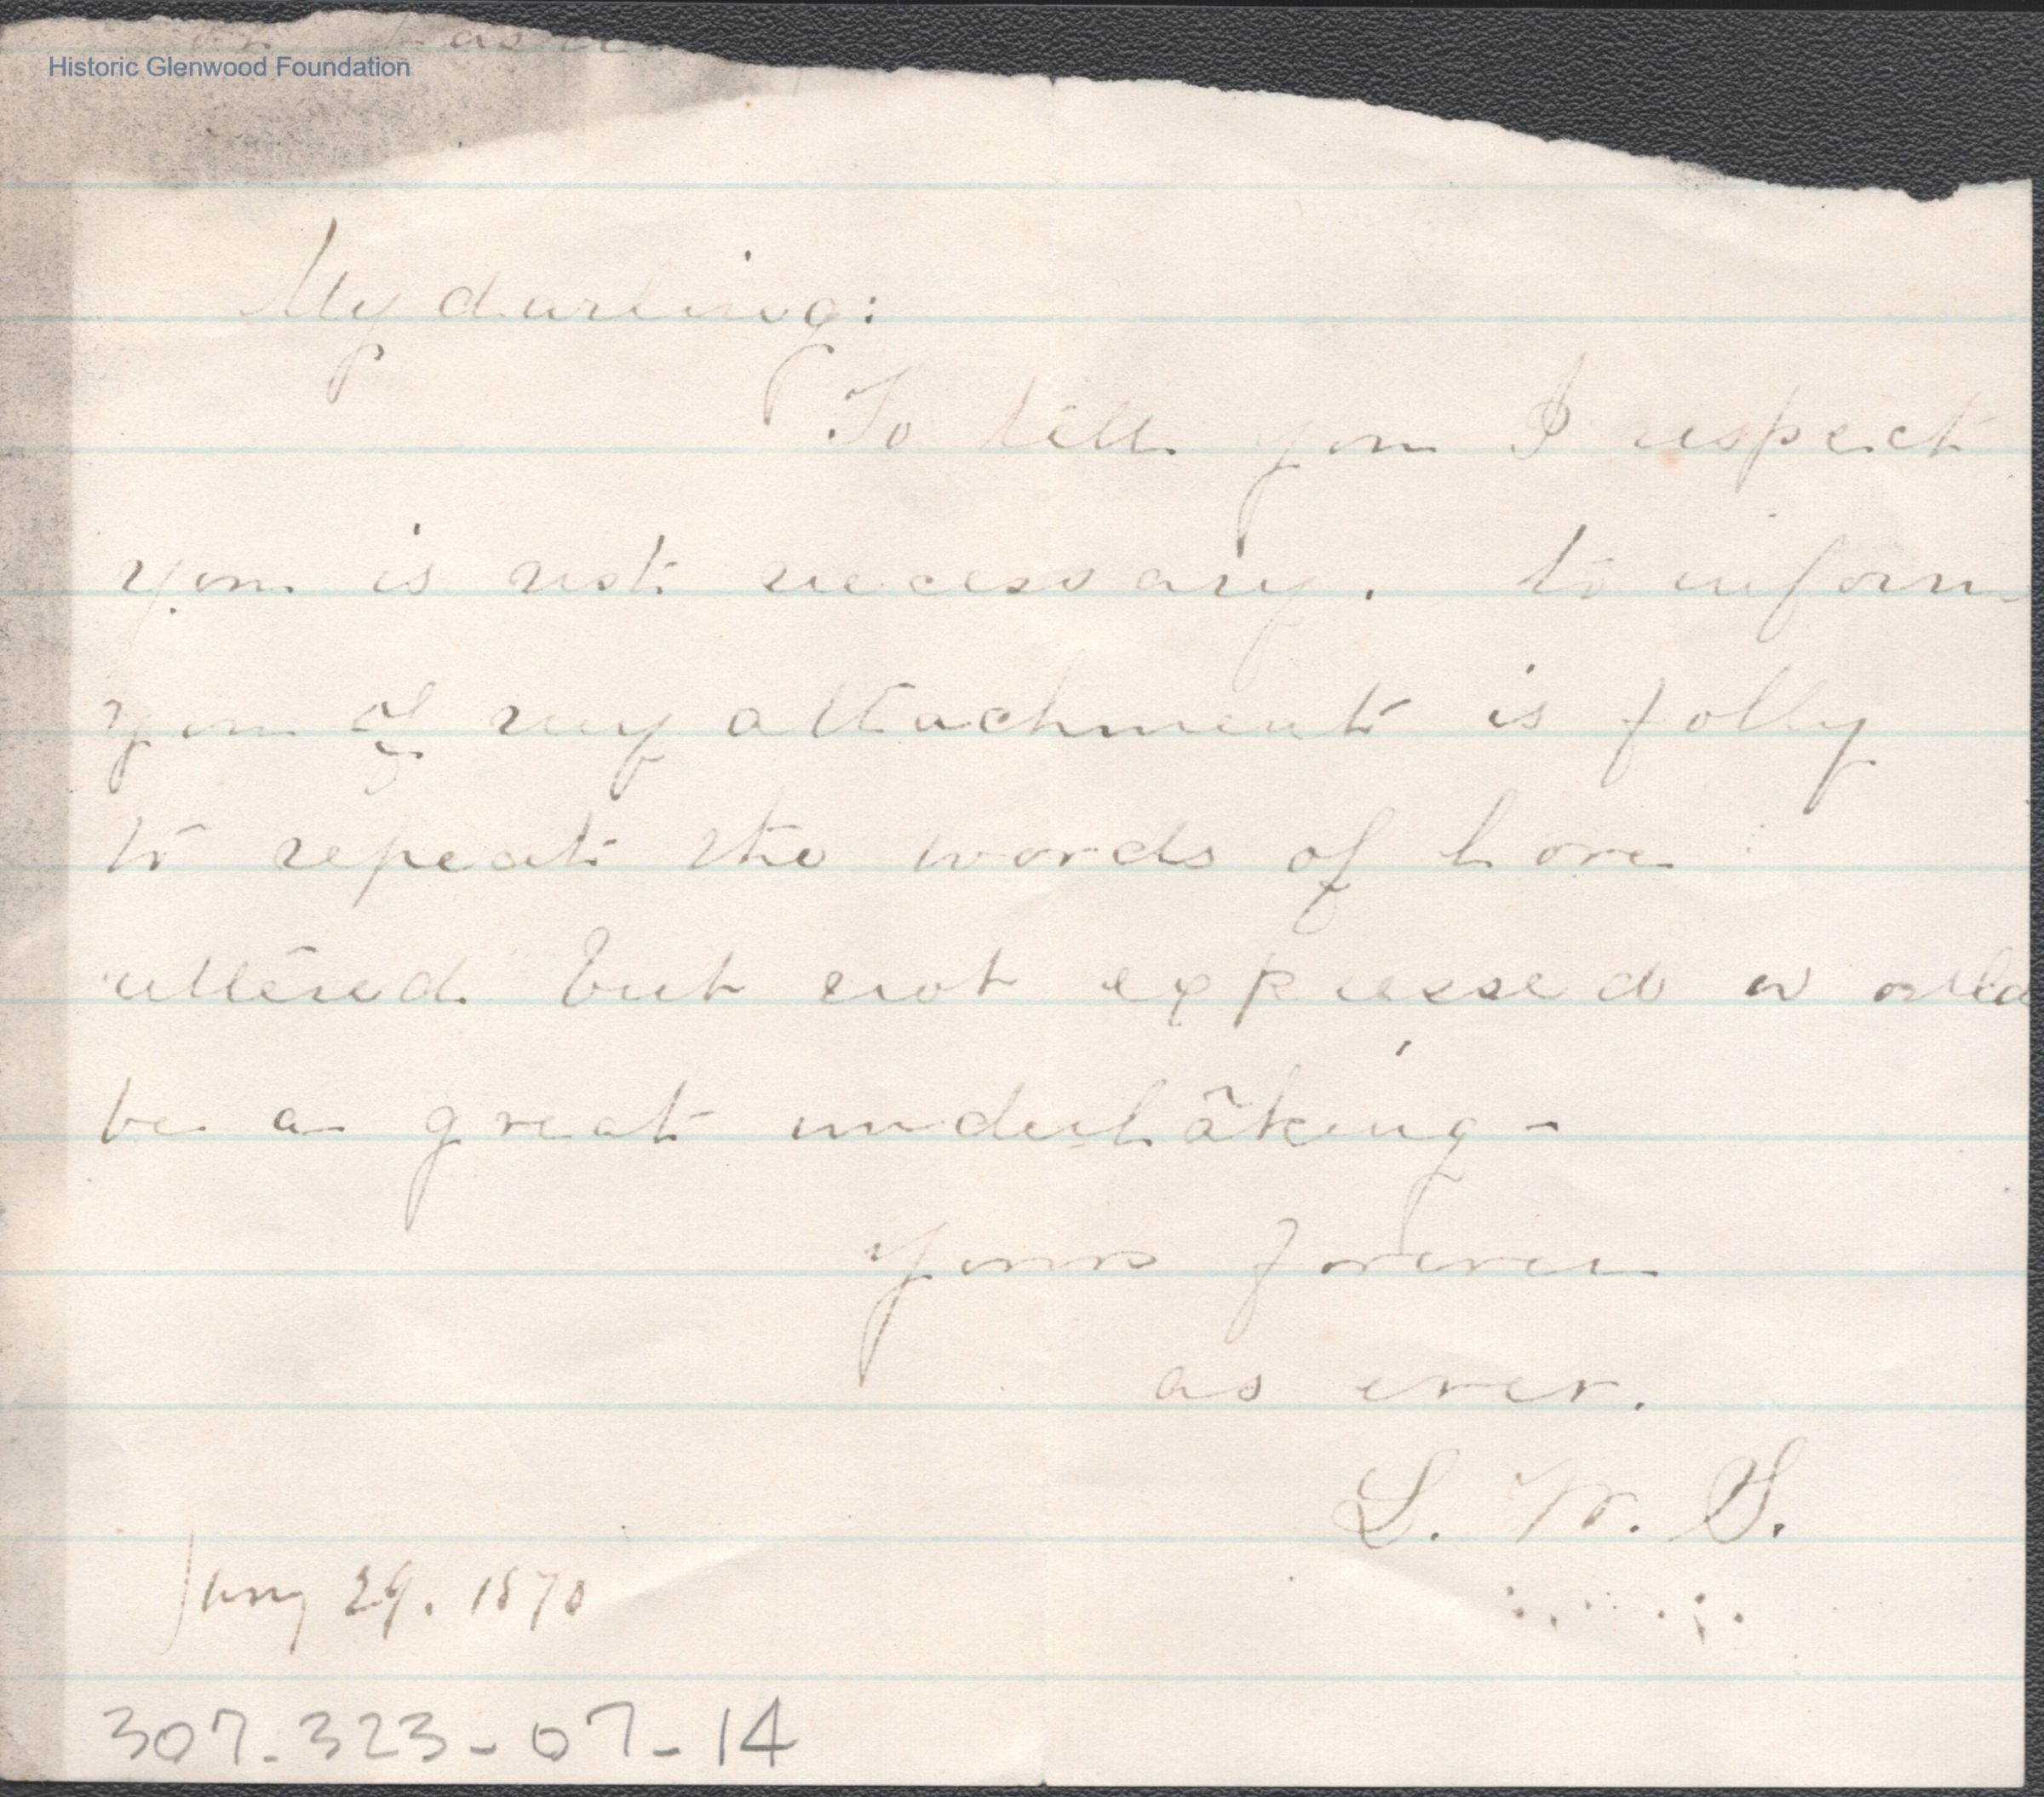 Historic Glenwood Foundation
My darling:
To tell you I respect
you is not necessary. to inform
you of my attachment is folly
to repeat the words of love
uttered but not expressed would
be a great undertaking-
yours forever
as ever.
L. W. S.
Jany 29. 1870
307-323-07-14